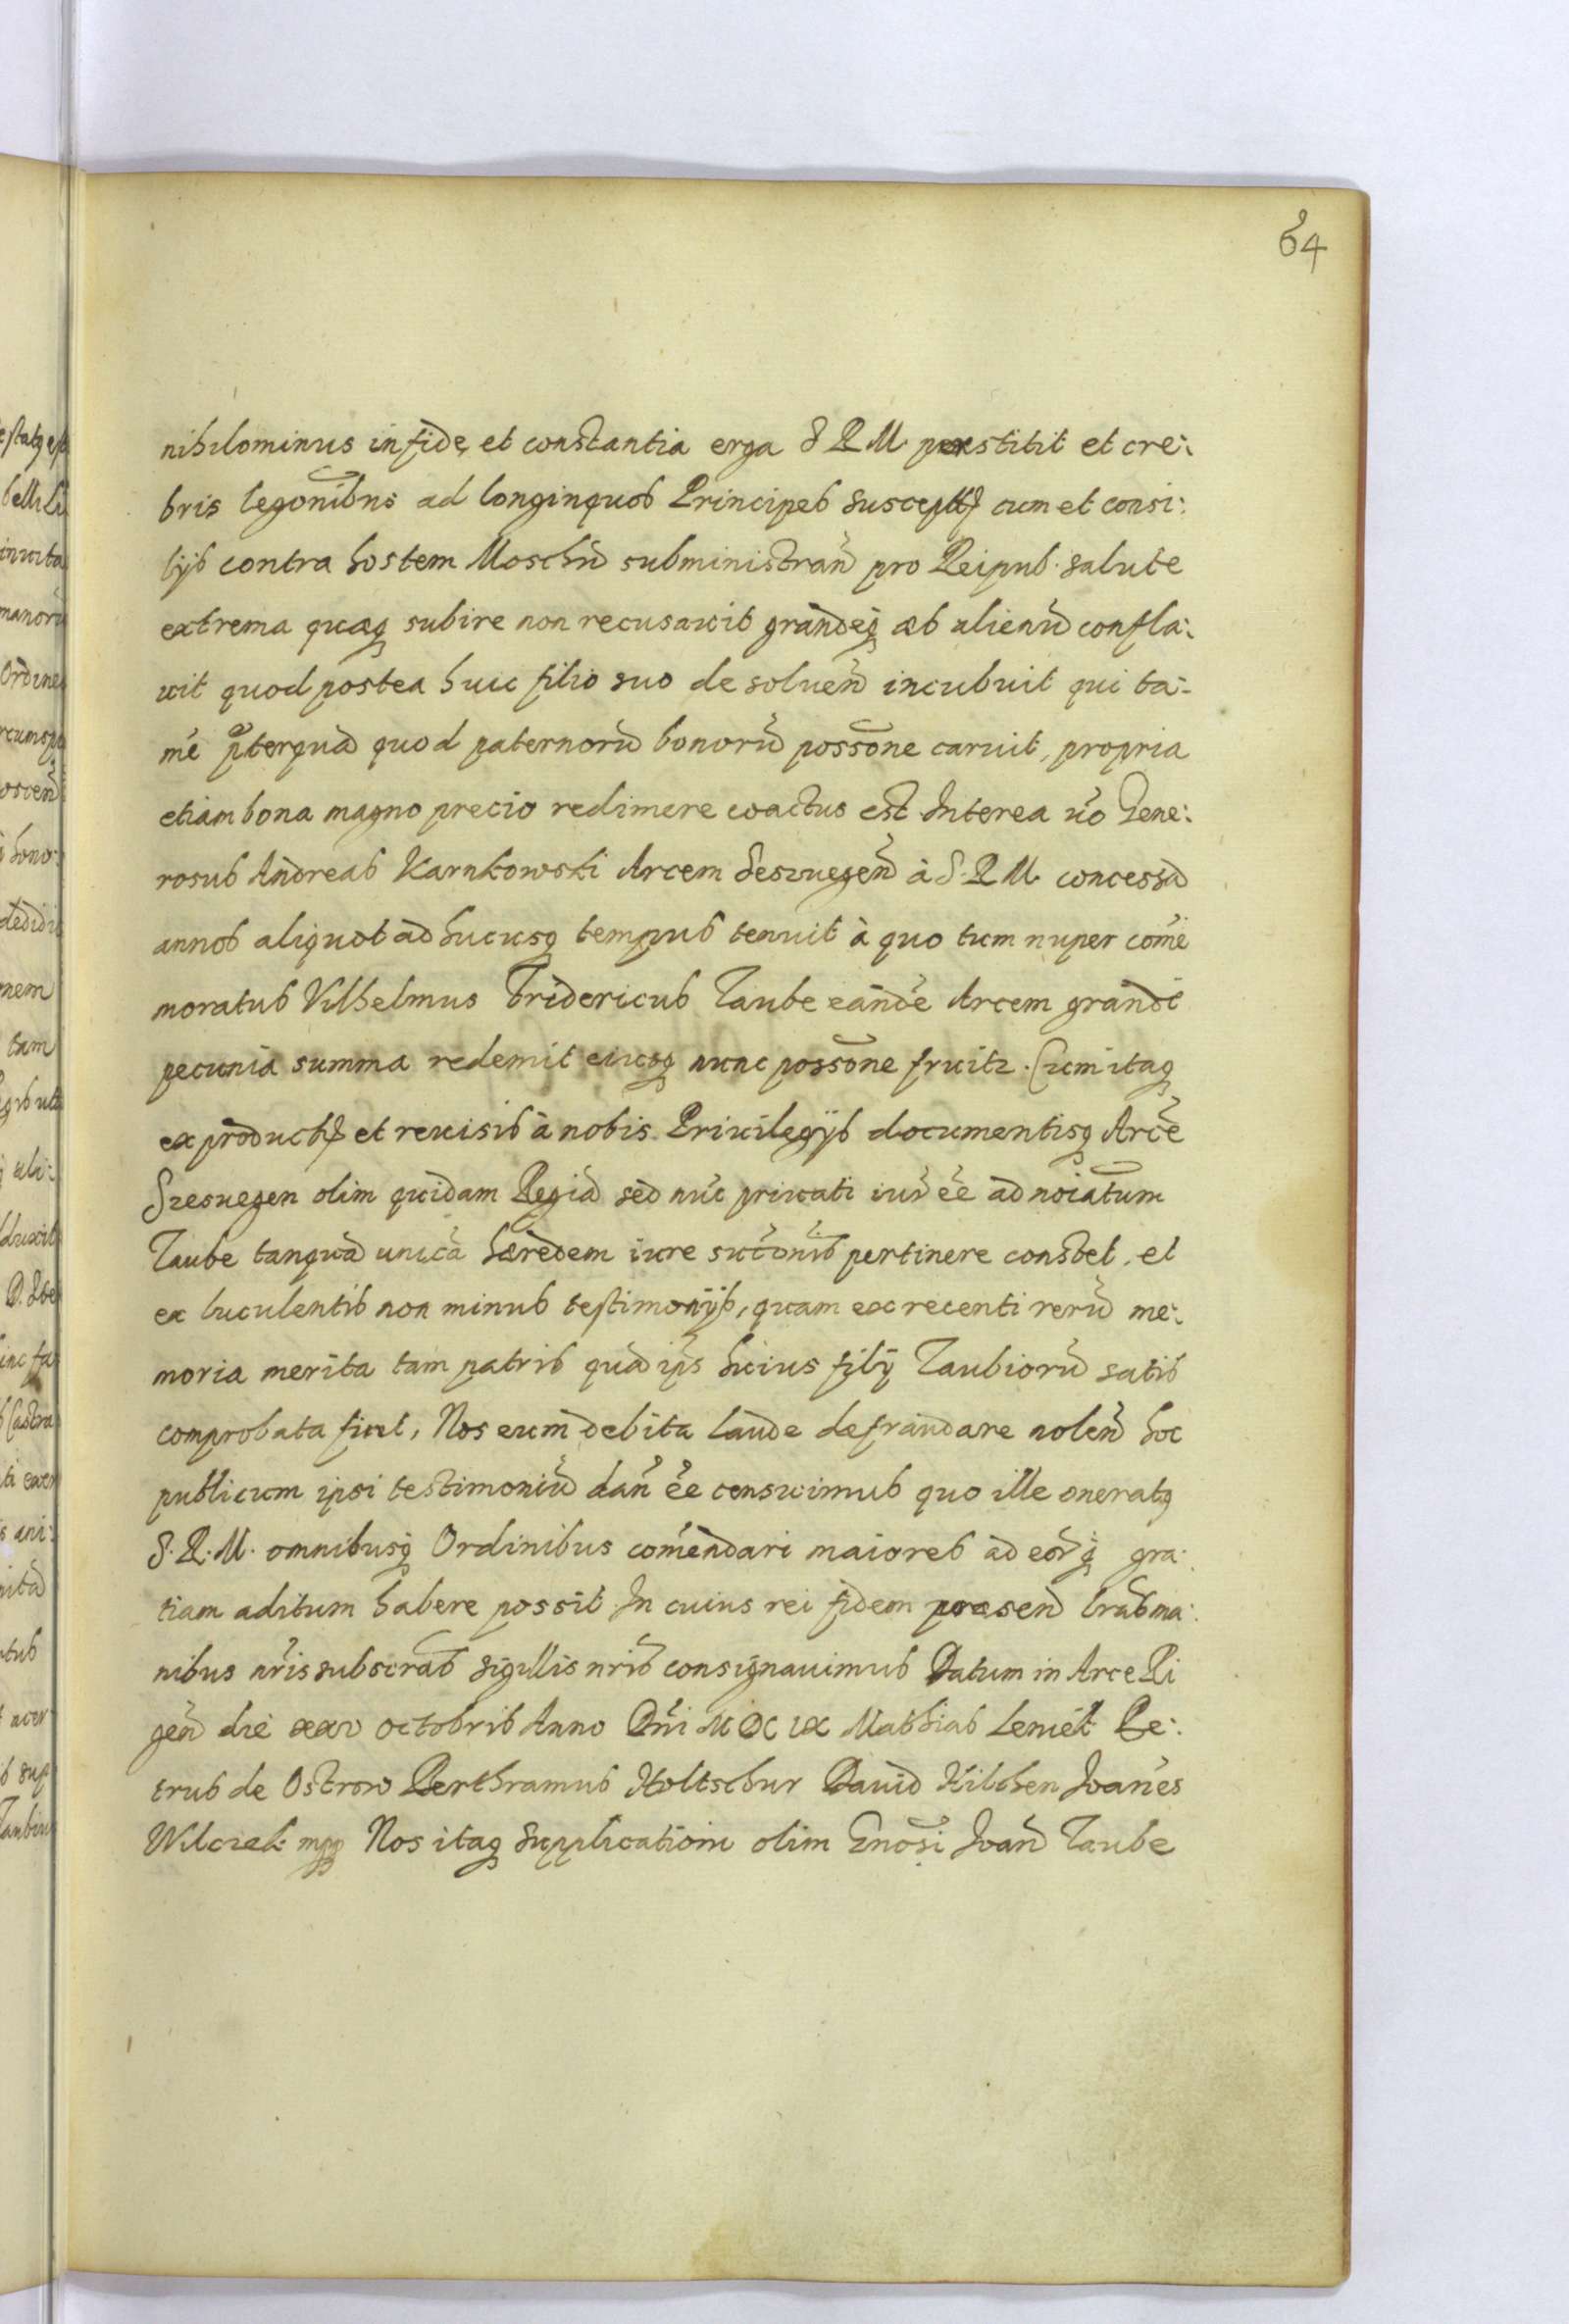 64
nihilominus in fide, et constantia erga S R M. perstitit et cre:
bris legōnibus ad longinquos Principes susceptis cum et consi:
lijs contra hostem Moschū subministran̄ pro Reipub. salute
extrema quæq subire non recusavit grandeq æs alienū confla:
uit quod postea huic filio suo de soluen̄ incubuit qui ta:
mē p̄terquā quod paternorū bonorū possōne caruit, propria
etiam bona magno precio redimere coactus est Interea v̄o Gene:
rosus Andreas Karnkowski Arcem Seswegen̄ à S. R M. concessā
annos aliquot ad hucusq tempus tenuit à quo tum nuper com̄e
moratus Vilhelmus Fridericus Taube eandē Arcem grandi
pecunia summa redemit eiusq nunc possōne fruitr. Cum itaq
ex productis et revisis à nobis Priuilegijs documentisq Arcē
Szesuegen olim quidam Regiā sed nūc priuati iur̄ ēe ad noiatum
Taube tanquā unicā hæredem iure succōnis pertinere constet, et
ex luculentis non minus testimonijs, quam ex recenti rerū me:
moria merita tam patris quā ip̄s huius filij Taubiorū satis
comprobata sint, Nos eum debita laude defraudare nolen̄ hoc
publicum ipsi testimoniū dan̄ ēe censuimus quo ille oneratq
S. R. M. omnibusq Ordinibus com̄endari maiores ad eor̄q gra:
tiam aditum habere possit In cuius rei fidem præsen̄ lr̄as ma:
nibus nr̄is subscrat̄ sigillis nr̄is consignauimus Datum in Arce Ri
gen̄ die xxv octobris Anno Dn̄i M D C IX Mathias Leniek Pe:
trus de Ostrow Berthramus Holtschur Dauid Hilchen Joan̄es
Wilczek mpp Nos itaq supplicationi olim Gnōsi Joan̄ Taube